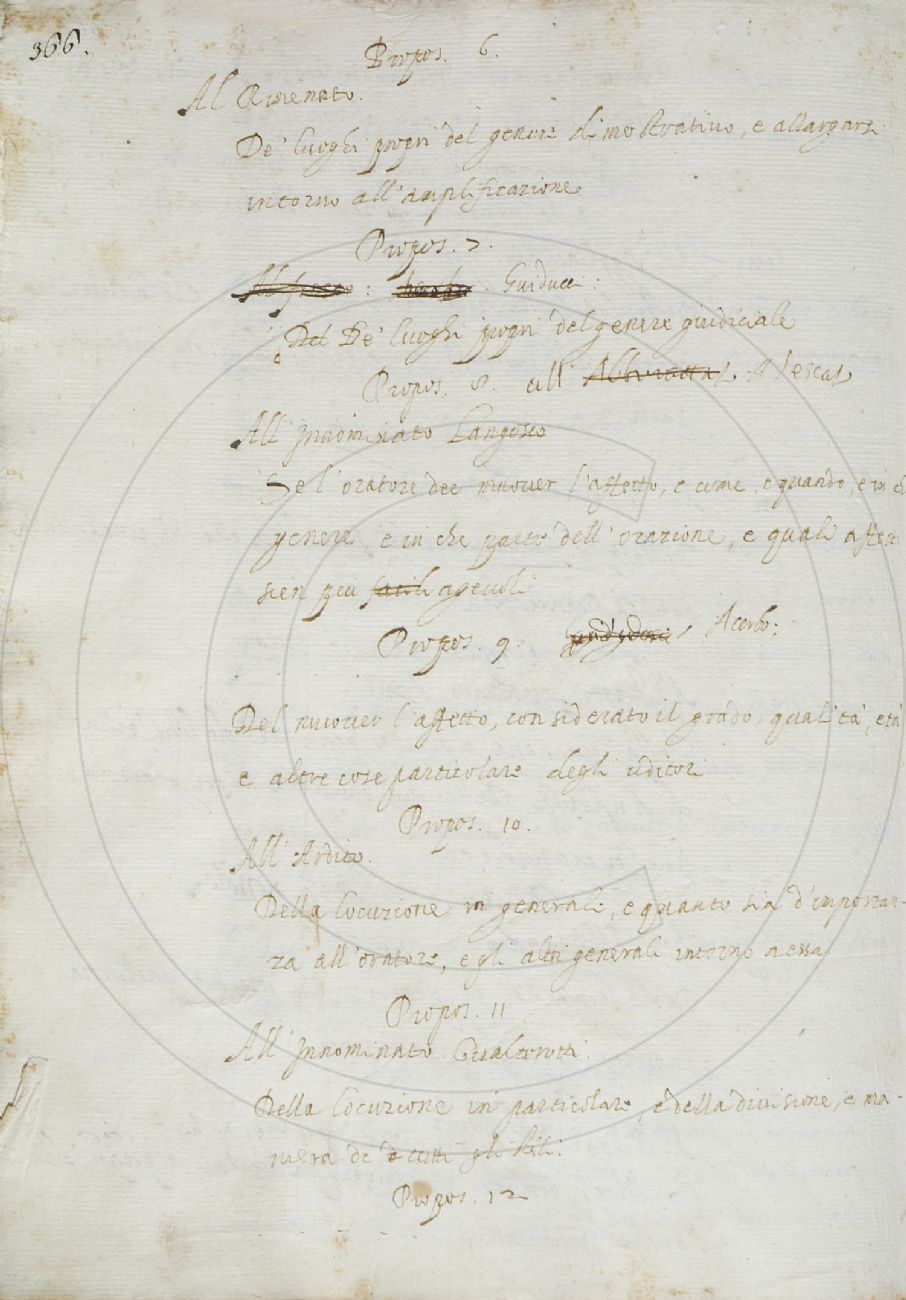 366.
Propos. 6.
Al Rimenato.
De' luoghi propri del genere dimostrativo, e allargarsi
intorno all'amplificazione
Propos. 7.
Guiducci:
Del De' luoghi propri del genere giudiciale
Propos. 8. all'
All'Innominato Langosco
Se l'oratore dee muover l'affetto, e come, e quando, e in che
genere, e in che parte dell'orazione, e quali affetti
sien più facili agevoli
Propos. 9. Acerbo:
Del muover l'affetto, considerato il grado, qualità, età
e altre cose particolare degli uditori
Propos. 10.
All'Ardito.
Della locuzione in generale, e quanto sia d'importan-
za all'oratore, e gli altri generali intorno a essa
Propos. 11
All'Innominato Gualterotti.
Della locuzione in particolare, e della divisione, e ma-
niera di tutti gli stili.
Propos. 12